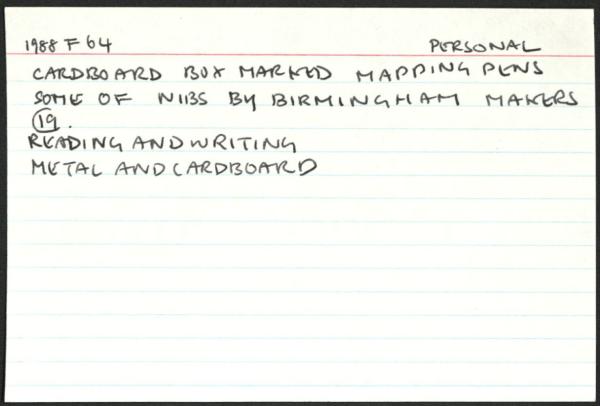 1988 F 64 PERSONAL
CARDBOARD BOX MARKED MAPPING PENS
SOME OF NIBS BY BIRMINGHAM MAKERS
19.
READING AND WRITING
METAL AND CARDBOARD